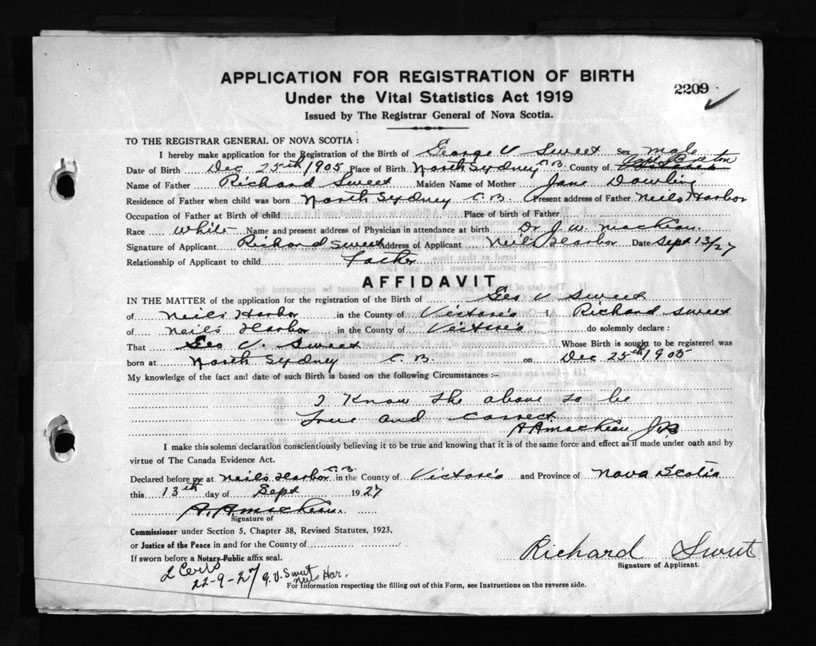 APPLICATION FOR REGISTRATION OF BIRTH
Under the Vital Statistics Act 1919
2209
Issued by The Registrar General of Nova Scotia.
TO THE REGISTRAR GENERAL OF NOVA SCOTIA :
I hereby make application for the Registration of the Birth of George V Sweet Sex male
Date of Birth Dec 25th 1905 Place of Birth North Sydney C.B. County of Cape Breton
Name of Father Richard Sweet Maiden Name of Mother Jane Dowling
Residence of Father when child was born North Sydney C.B. Present address of Father Neils Harbor
Occupation of Father at Birth of child Place of birth of Father
Race White Name and present address of Physician in attendance at birth Dr J. W. MacKeau
Signature of Applicant Richard Sweet Address of Applicant Neils Harbor Date Sept 13/27
Relationship of Applicant to child Father
AFFIDAVIT
IN THE MATTER of the application for the registration of the Birth of Geo V Sweet
of Neils Harbor in the County of Victoria I Richard Sweet
of Neils Harbor in the County of Victoria do solemnly declare :
That Geo V. Sweet Whose Birth is sought to be registered was
born at North Sydney C.B. on Dec 25th 1905
My knowledge of the fact and date of such Birth is based on the following Circumstances :-
I Know the above to be
true and correct
I make this solemn declaration conscientiously believing it to be true and knowing that it is of the same force and effect as if made under oath and by
virtue of The Canada Evidence Act.
Declared before me at Neils Harbor C.B. in the County of Victoria and Province of Nova Scotia
this 13th day of Sept 1927
Signature of
Commissioner under Section 5, Chapter 38, Revised Statutes, 1923.
or Justice of the Peace in and for the County of
If sworn before a Notary Public affix seal.
Richard Sweet
Signature of Applicant.
2 Certs
22-9-27 G. V. Sweet
Neils Har.
For Information respecting the filling out of this Form, see Instructions on the reverse side.